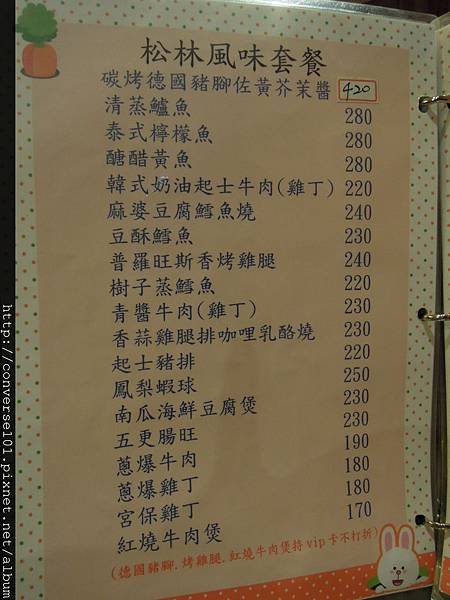 松林風味套餐
碳烤德國豬腳佐黃芥茉醬 420
清蒸鱸魚 280
泰式檸檬魚 280
醣醋黃魚 280
韓式奶油起士牛肉(雞丁) 220
麻婆豆腐鱈魚燒 240
豆酥鱈魚 230
普羅旺斯香烤雞腿 240
樹子蒸鱈魚 220
青醬牛肉(雞丁) 230
香蒜雞腿排咖哩乳酪燒 230
起士豬排 220
鳳梨蝦球 250
南瓜海鮮豆腐煲 230
五更腸旺 230
蔥爆牛肉 190
蔥爆雞丁 180
宮保雞丁 180
紅燒牛肉煲 170
(德國豬腳.烤雞腿.紅燒牛肉煲持vip卡不打折)
http://converse101.pixnet.net/album